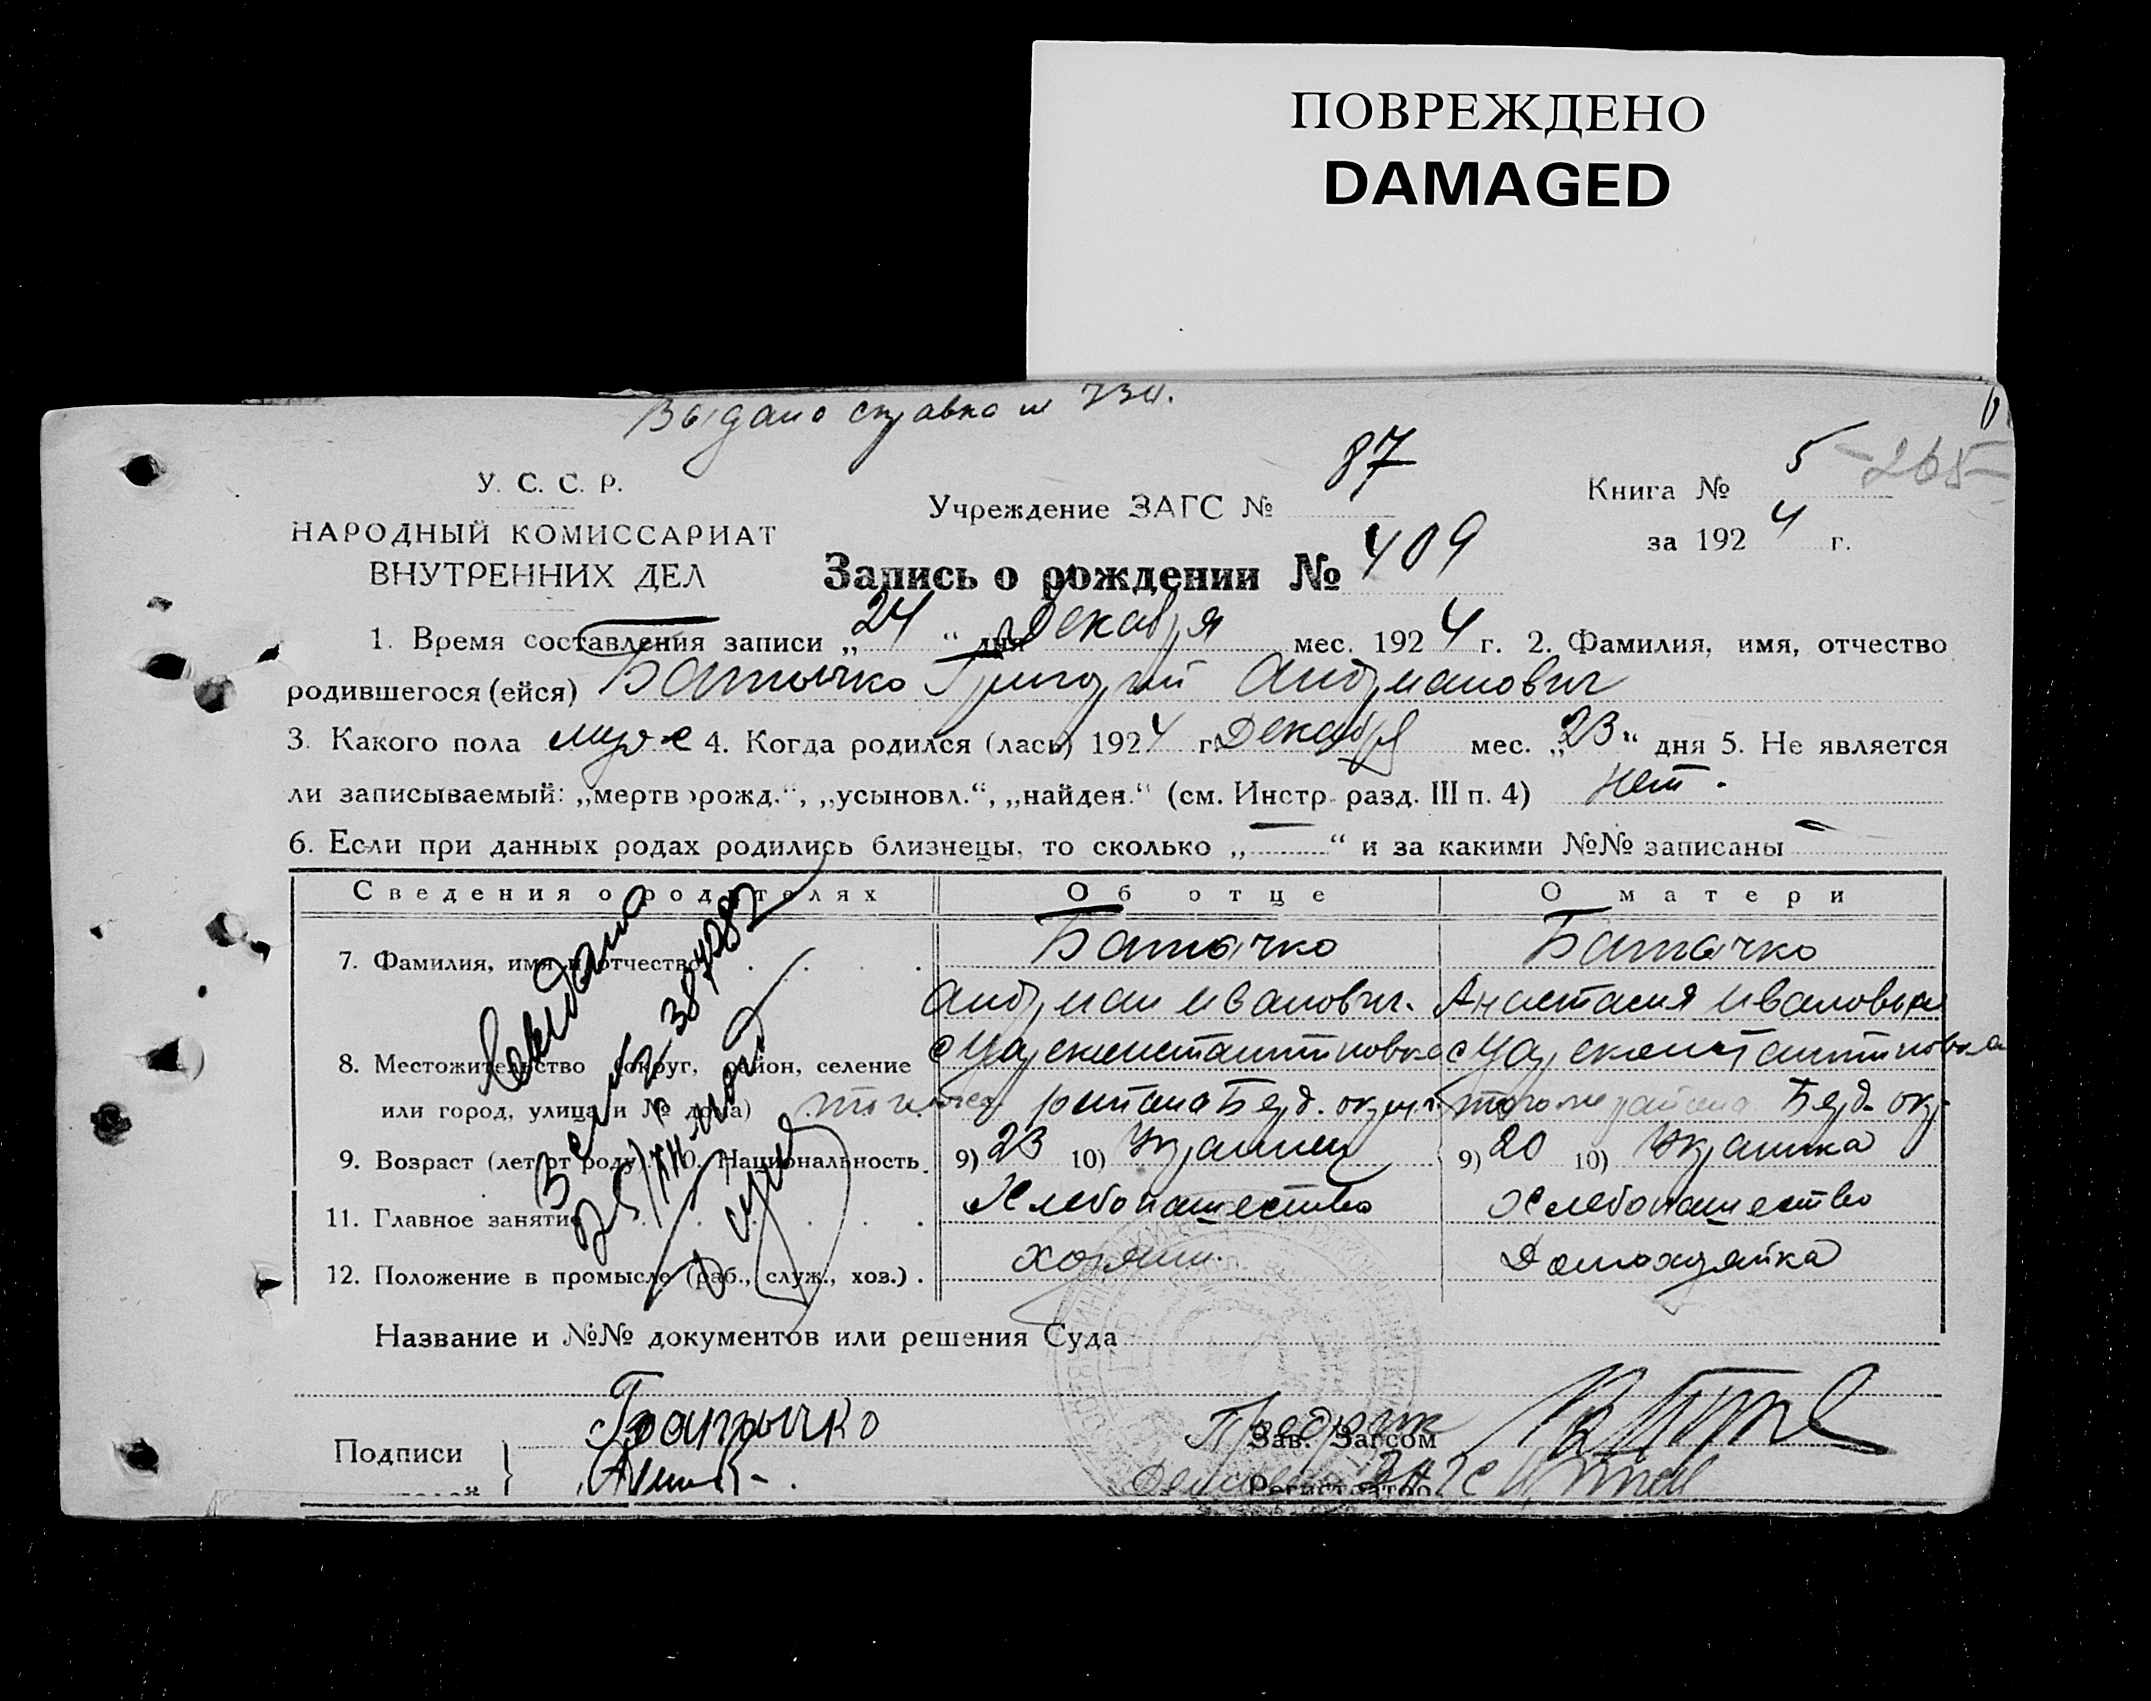 ПОВРЕЖДЕНО
DAMAGED
Выдано справка
У. С. С. Р.
НАРОДНЫЙ КОМИССАРИАТ
ВНУТРЕННИХ ДЕЛ
Учреждение ЗАГС № 87
Книга № 5 -265-
за 1924 г.
Запись о рождении № 409
1. Время составления записи „24“ дня Декабря мес. 1924 г. 2. Фамилия, имя, отчество
родившегося (ейся) Батычко Григорий Андрианович
3. Какого пола муж 4. Когда родился (лась) 1924 г. Декабря мес. „23“ дня 5. Не является
ли записываемый: „мертворожд.“, „усыновл.“, „найден.“ (см. Инстр. разд. III п. 4) нет.
6. Если при данных родах родились близнецы, то сколько „—“ и за какими №№ записаны —
Сведения о родителях Об отце О матери
7. Фамилия, имя и отчество Батычко Батычко
Андриан Иванович. Анастасия Ивановна
8. Местожительство (округ, район, селение с Цареконстантиновка с Цареконстантиновка
или город, улица и № дома) того же района Берд. округ. того же района Берд. окр.
9. Возраст (лет от роду). 10. Национальность 9) 23 10) Украинец 9) 20 10) Украинка
11. Главное занятие Хлебопашество Хлебопашество
12. Положение в промысле (раб., служ., хоз.) хозяин. Домохозяйка
Название и №№ документов или решения Суда
Подписи Батычко
Зав. Загсом